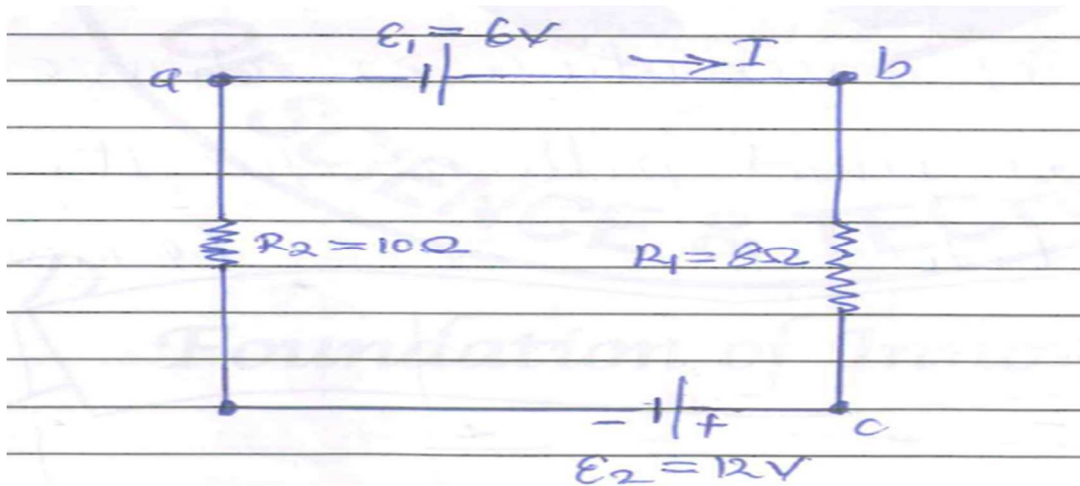 ε₁ = 6V
a
I
b
R₂ = 10Ω
R₁ = 8Ω
- +
c
ε₂ = 12V